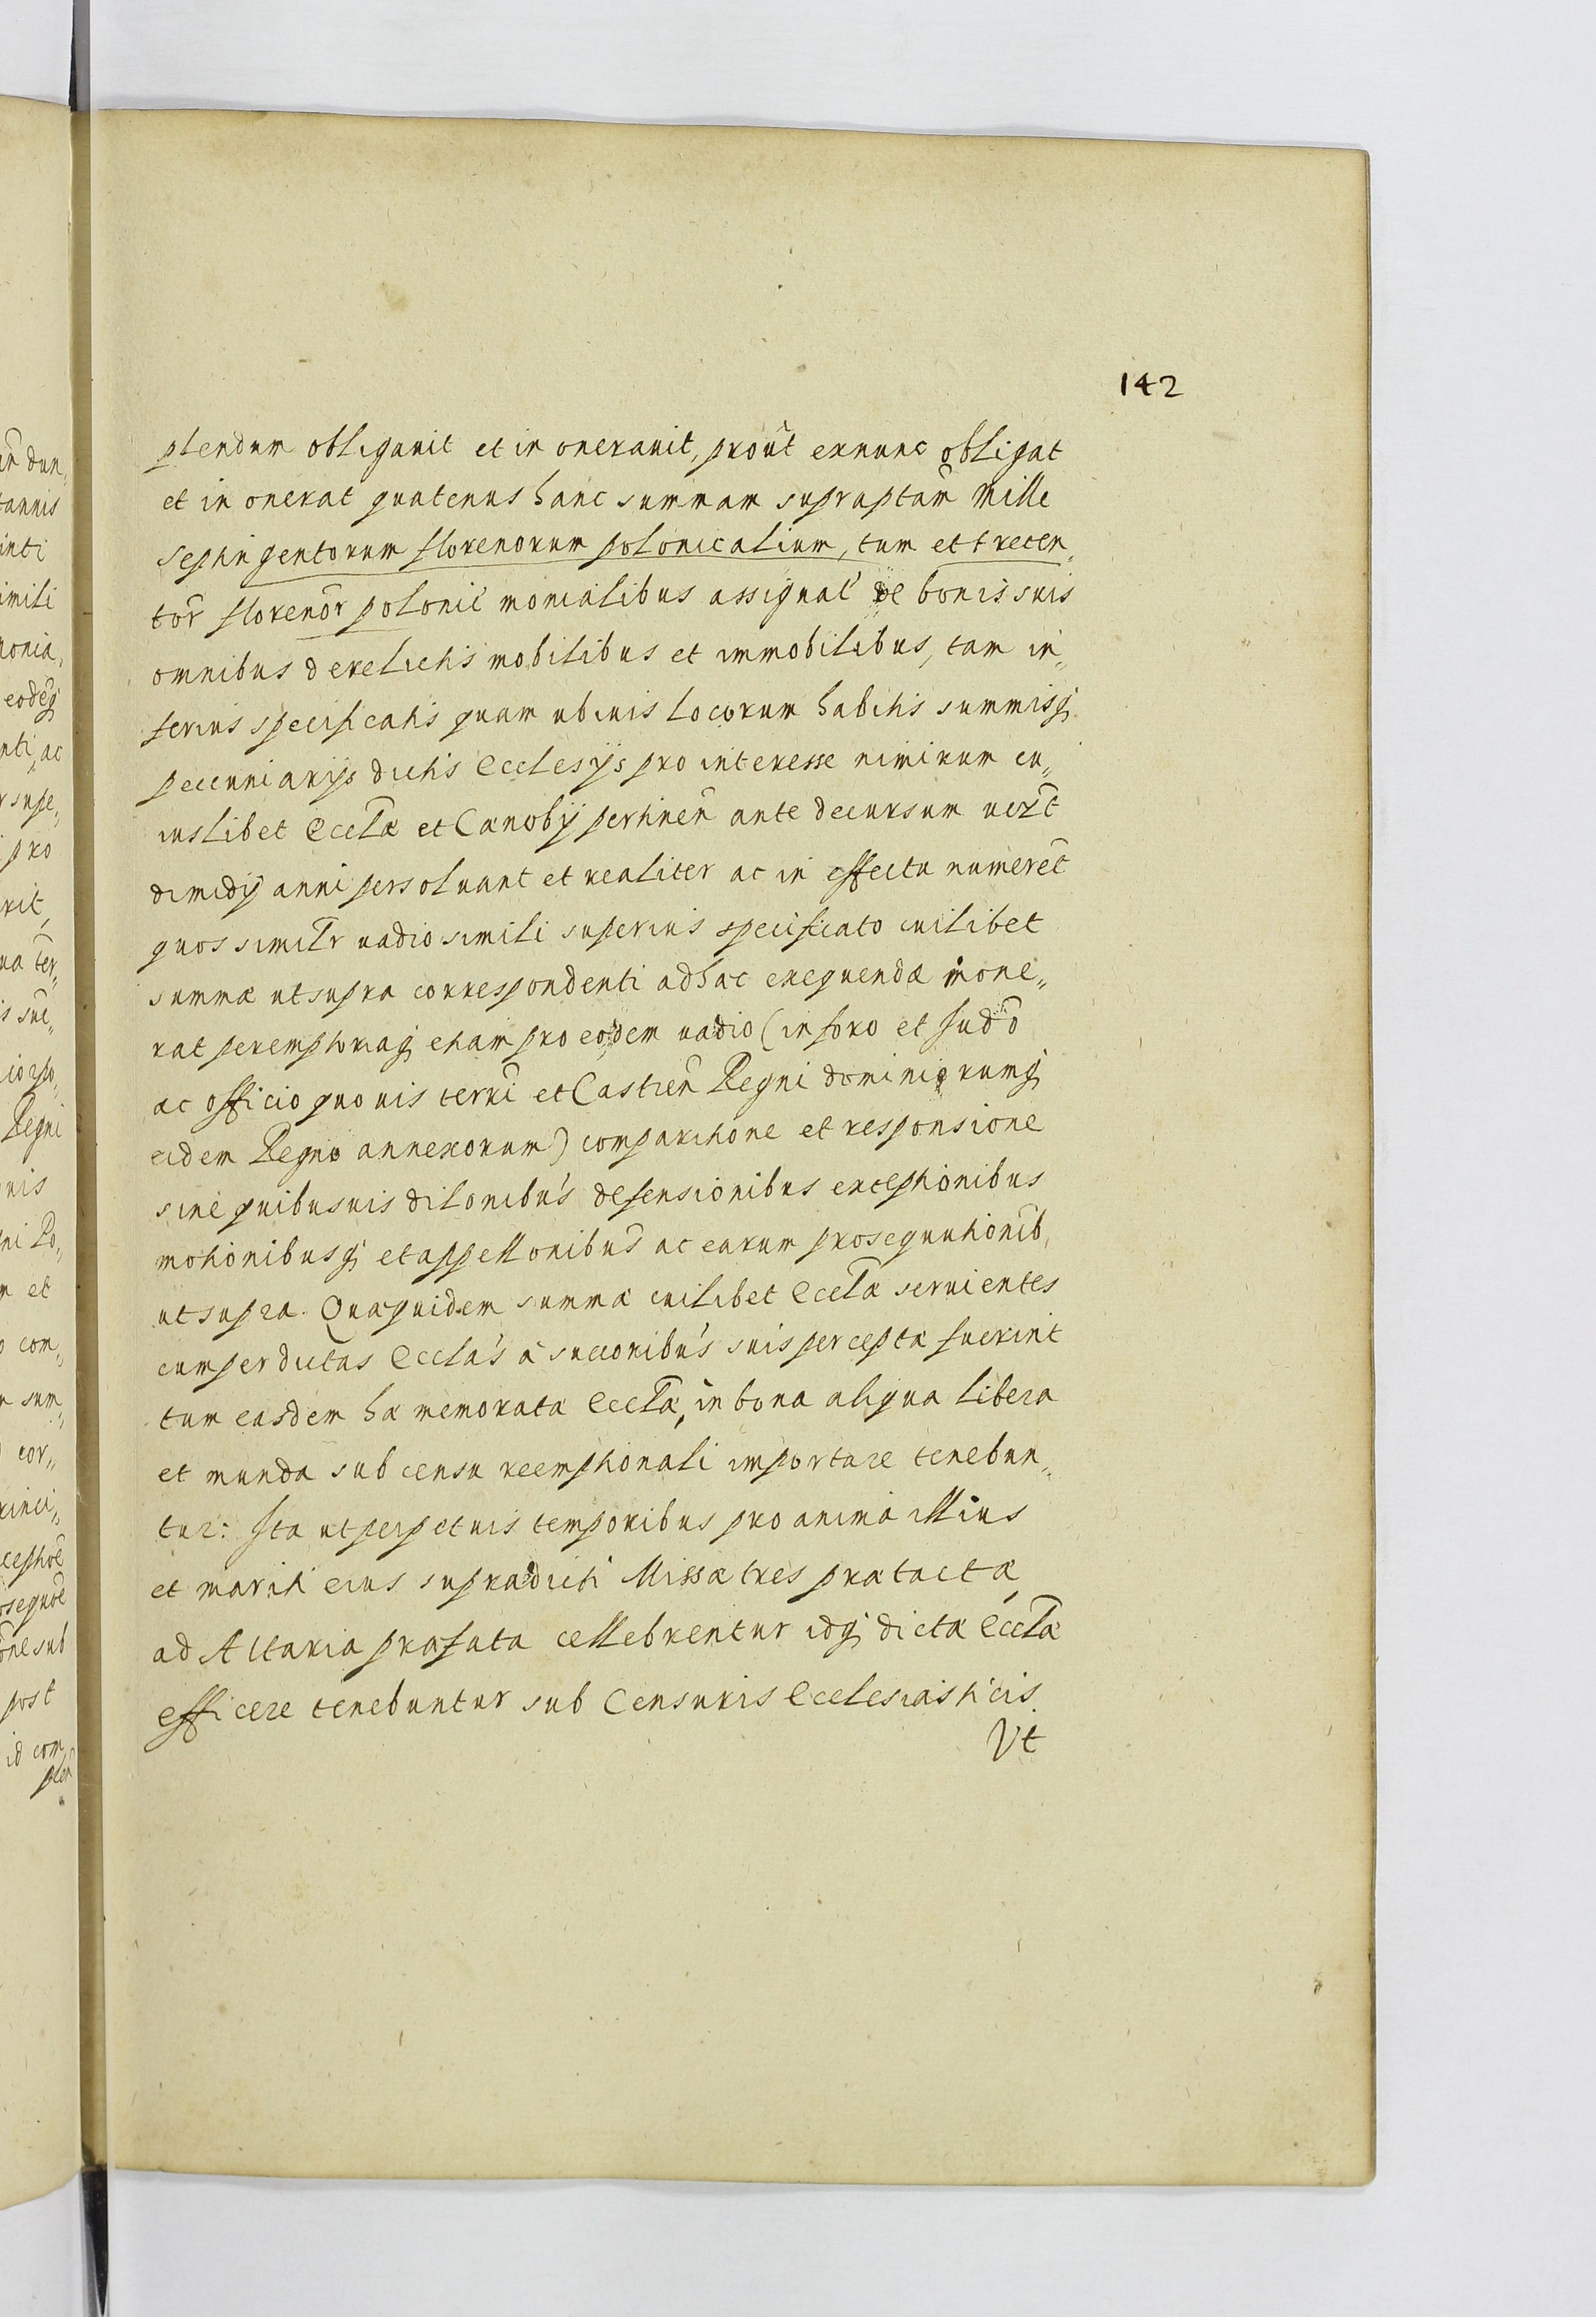 142
plendum obligauit et in onerauit, prout exnunc obligat
et in onerat quatenus hanc summam suprapta͞m Mille
septingentorum florenorum polonicalium, tum et trecen„
to͞r floreno͞r polonic̄ monialibus assignat̄ de bonis suis
omnibus derelictis mobilibus et immobilibus, tam in„
ferius specificatis quam ubiuis locorum habitis summisq́
pecuniarijs dictis Ecclesijs pro interesse nimirum cu„
iuslibet Eccl͞æ et Cænobij pertinen͞ ante decursum
dimidij anni persoluant et realiter ac in effectu numere͞t
quos simil͞r uadio simili superius specificato cuilibet
summæ ut supra correspondenti ad hæc exequenda inone„
rat peremptoriaq́ etiam pro eodem uadio (in foro et Jud͞o
ac officio quouis terr͞i et Castren͞ Regni dominiorumq́
eidem Regno annexorum) comparitione et responsione
sine quibusuis dilonibu͞s defensionibus exceptionibus
motionibusq́ et appellonibu͞s ac earum prosequutioni͞b,
ut supra. Quæquidem summæ cuilibet Eccl͞æ seruientes
cum per dictas Eccla͞s à succonibu͞s suis perceptæ fuerint
tum easdem hæ memoratæ Eccl͞æ, in bona aliqua libera
et munda sub censu reemptionali importare tenebun„
tur: Ita ut perpetuis temporibus pro anima illius
et mariti eius supradicti Missæ tres prætactæ
ad Altaria præfata cellebrentur idq́ dictæ Eccl͞æ
efficere tenebuntur sub Censuris Ecclesiasticis.
Vt